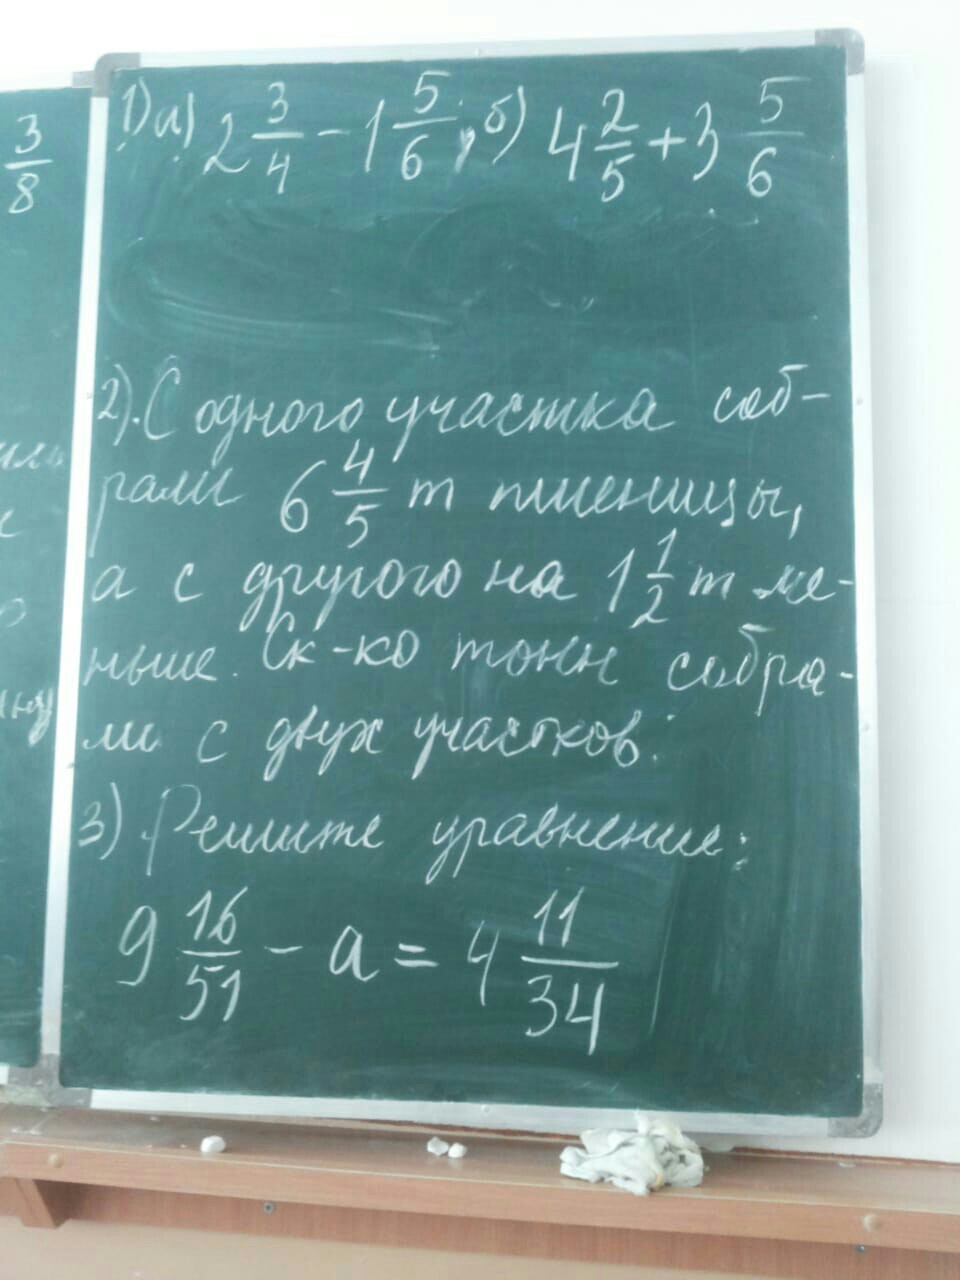 3/8
1) а) 2 3/4 - 1 5/6; б) 4 2/5 + 3 5/6
2). С одного участка соб-
рали 6 4/5 т пшеницы,
а с другого на 1 1/2 т ме-
ньше. Ск-ко тонн собра-
ли с двух участков.
3) Решите уравнение:
9 16/51 - а = 4 11/34